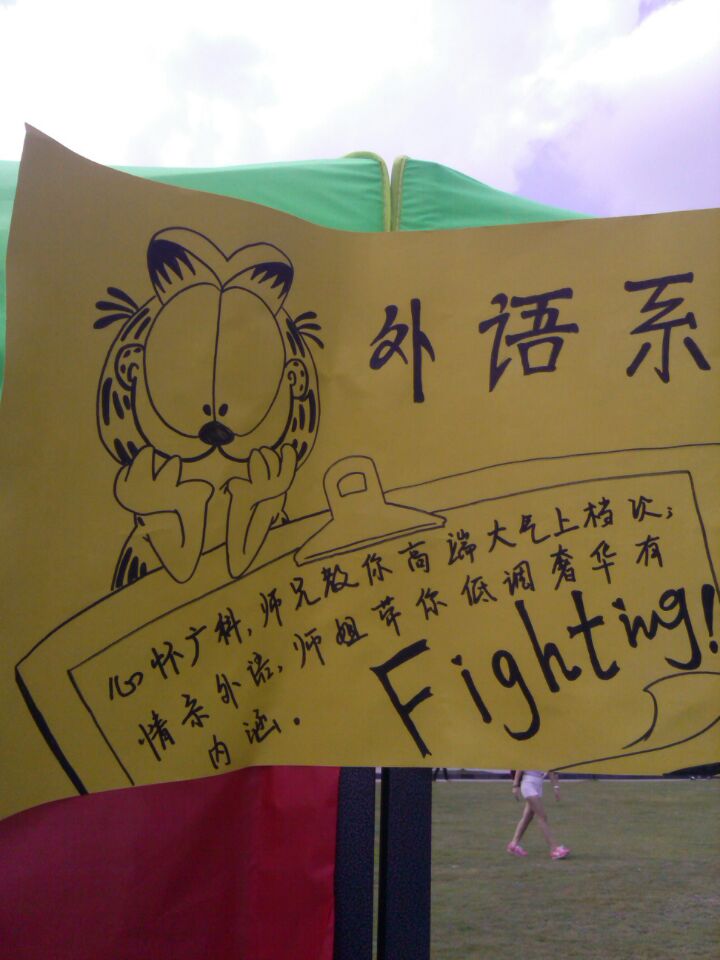 外语系
心怀广科,师兄教你高端大气上档次;
情系外语,师姐带你低调奢华有
内涵。
Fighting!